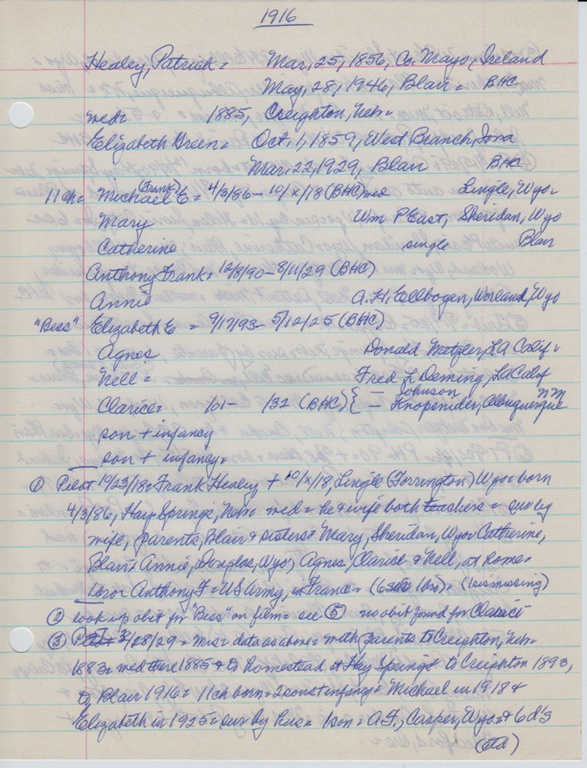 1916
Healey, Patrick = Mar, 25, 1856, Co. Mayo, Ireland
May, 28, 1946, Blair = BHC
wed = 1885, Creighton, Neb =
Elizabeth Green = Oct, 1, 1859, West Branch, Iowa
Mar, 22, 1929, Blair BHC
11 ch = Michael E (Frank) = 4/3/86 - 10/x/18 (BHC) wed Lingle, Wyo =
Mary Wm P East, Sheridan, Wyo
Catherine single Blair
Anthony Frank = 12/8/90 - 8/11/29 (BHC)
Annie A. H. Ellbogen, Worland, Wyo
"Bess" Elizabeth E = 9/17/93 - 5/12/25 (BHC)
Agnes Donald Metzler, LA Calif =
Nell = Fred L Deming, LA Calif
Clarice = /01 - /32 (BHC) { = Johnson
= Knopenider, Albuquerque NM
son + infancy
son + infancy =
① Pilot 10/23/18 = Frank Healey + 10/x/18, Lingle (Torrington) Wyo = born
4/3/86, Hay Springs, Neb = wed = he & wife both teachers = sur by
wife, parents, Blair & sisters = Mary, Sheridan, Wyo = Catherine,
Blair = Annie, Douglas, Wyo, Agnes, Clarise & Nell, at home =
1 bro = Anthony F = US Army, in France = (6 sis 1 bro) = (1 sis missing)
② look up obit for "Bess" on film = see ⑤ no obit found for Clarice
③ 3/28/29 = Mrs = data as above = with parents to Creighton, Neb =
1883 = wed 1885 & to homestead at Hay Springs & to Creighton 1893,
to Blair 1916 = 11 ch born = 2 sons + infancy = Michael in 1918 &
Elizabeth in 1925 = sur by hus = 1 son = A. F., Casper, Wyo = & 6 d's